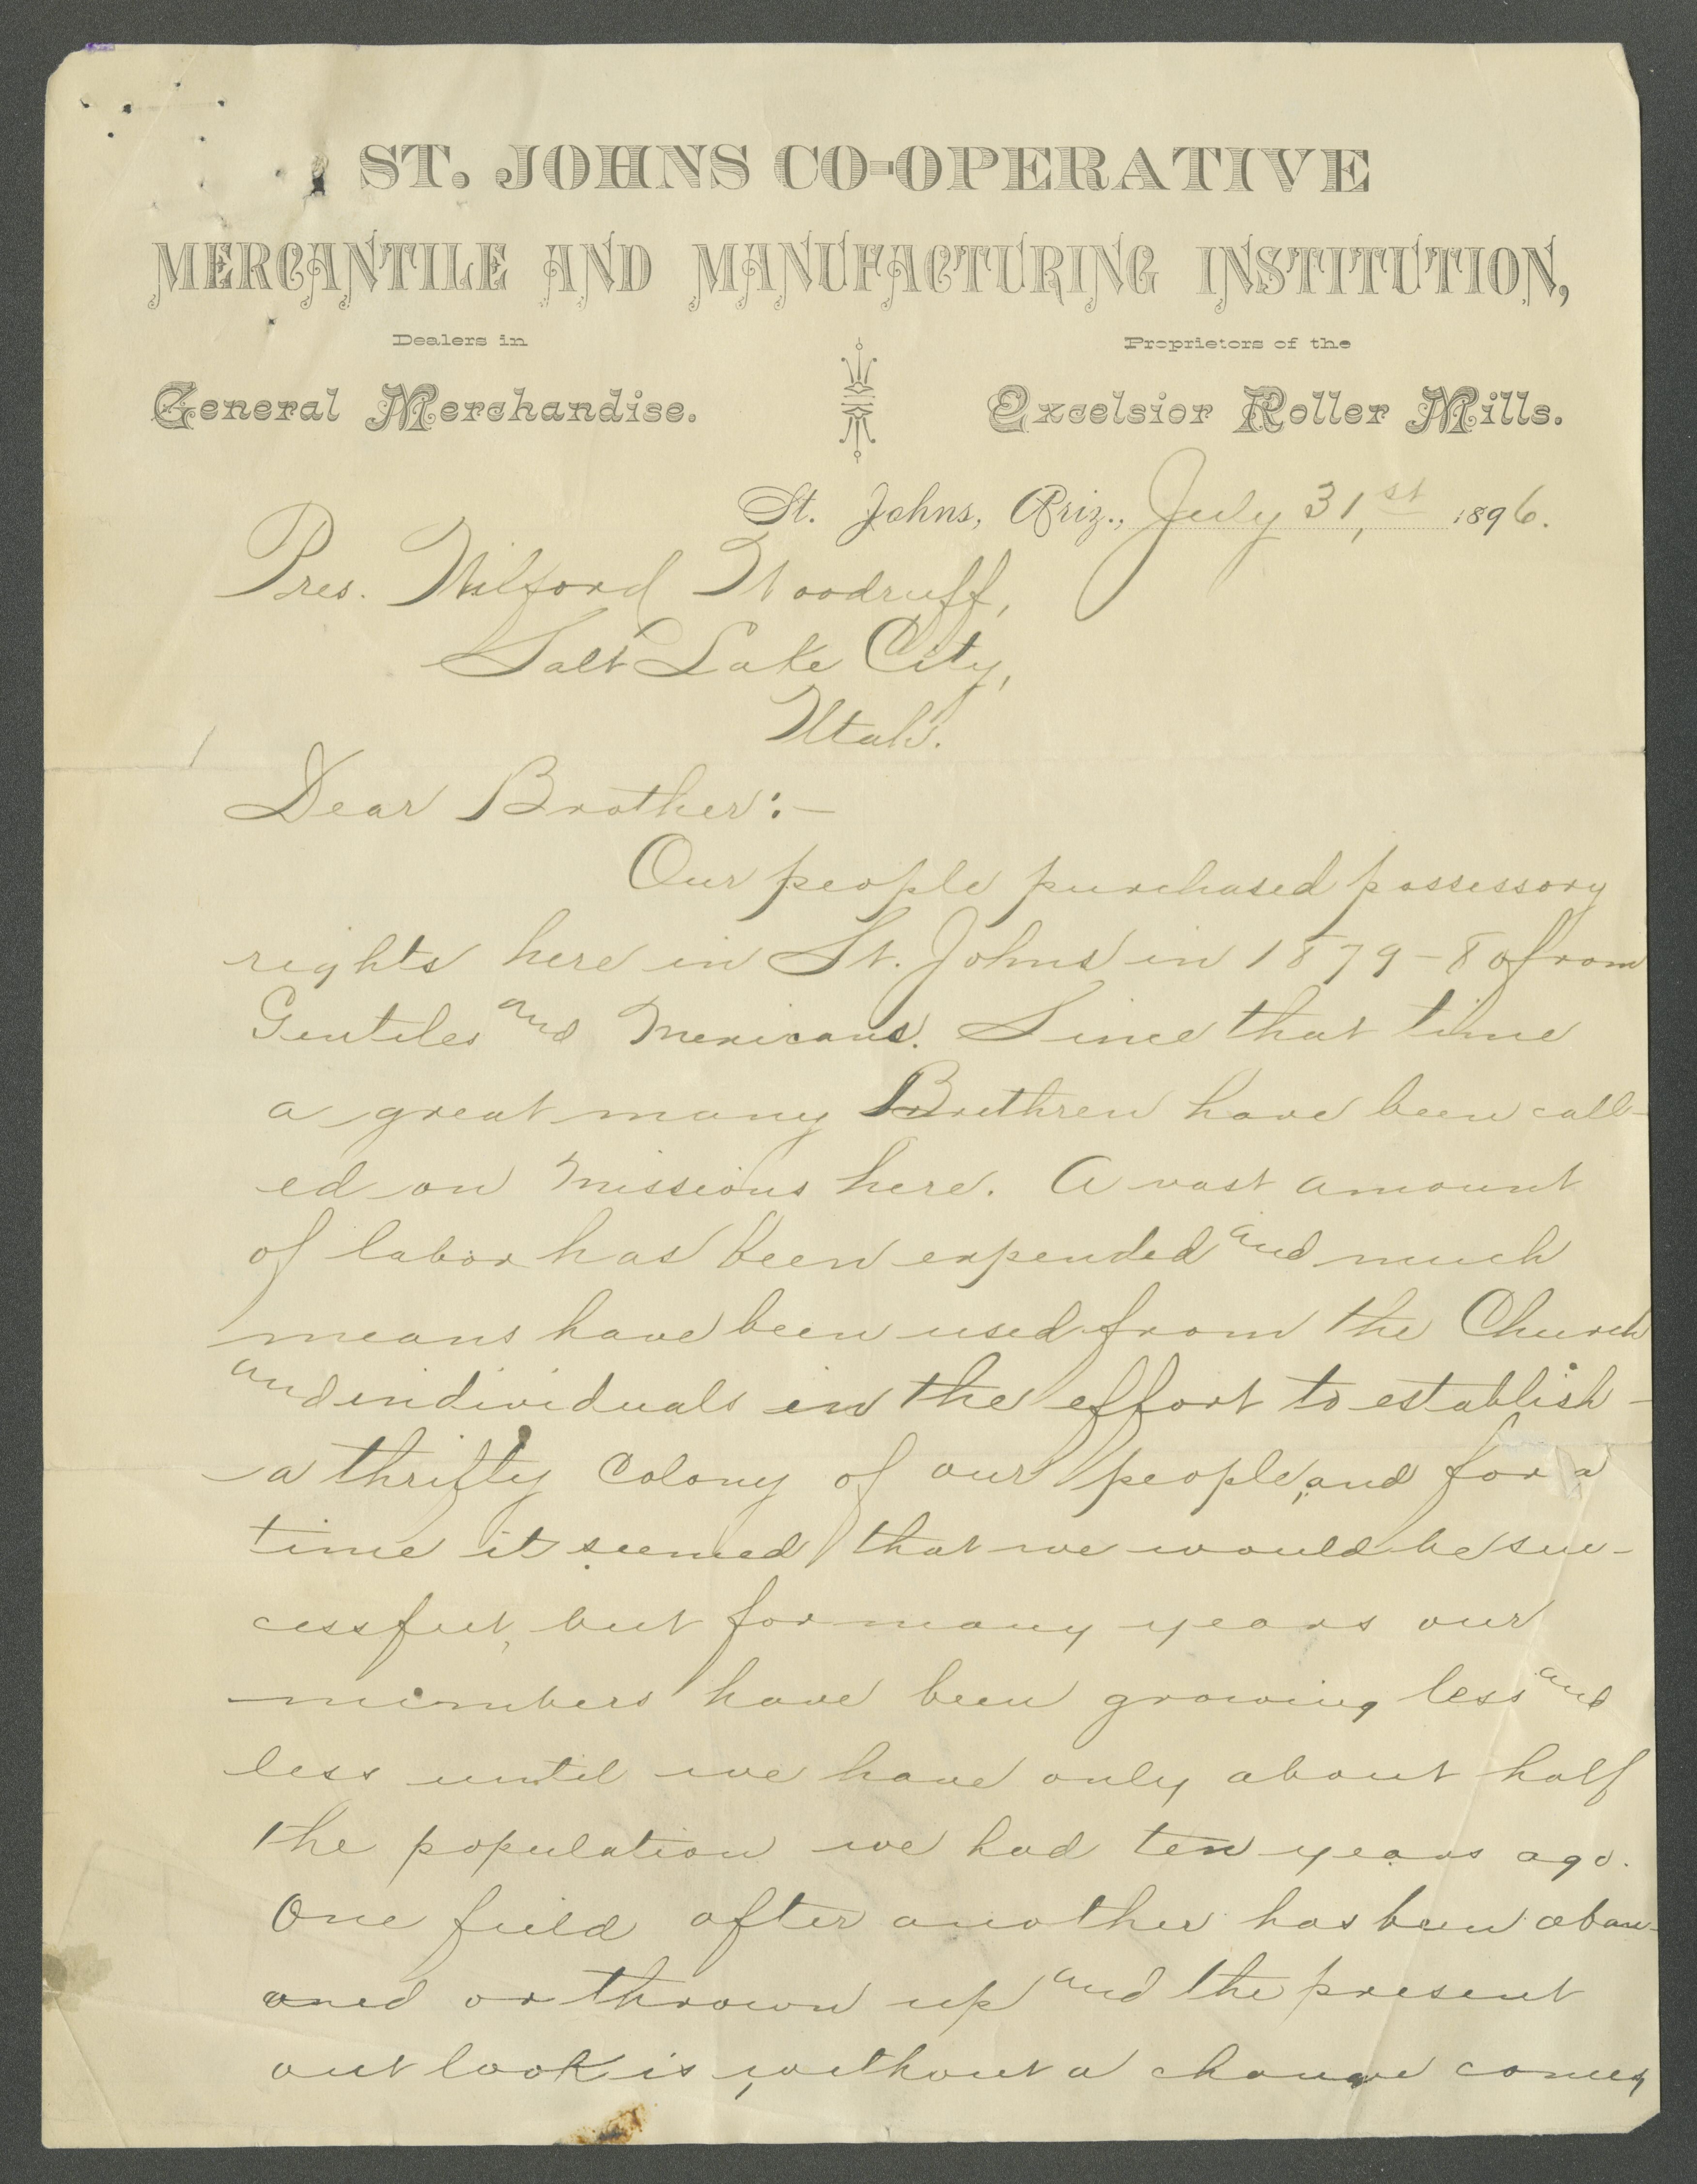 ST. JOHNS CO-OPERATIVE
MERCANTILE AND MANUFACTURING INSTITUTION,
Dealers in
General Merchandise.
Proprietors of the
Excelsior Roller Mills.
St. Johns, Ariz., July 31,st 1896.
Pres. Wilford Woodruff,
Salt Lake City,
Utah.
Dear Brother:—
Our people purchased possessory
rights here in St. Johns in 1879-80 from
Gentiles and Mexicans. Since that time
a great many Brethren have been call-
ed on missions here. A vast amount
of labor has been expended and much
means have been used from the Church
and individuals in the effort to establish -
a thrifty Colony of our people, and for a
time it seemed that we would be suc-
cessful, but for many years our
members have been growing less and
less until we have only about half
the population we had ten years ago.
One field after another has been aban-
oned or thrown up and the present
outlook is, without a change comes,